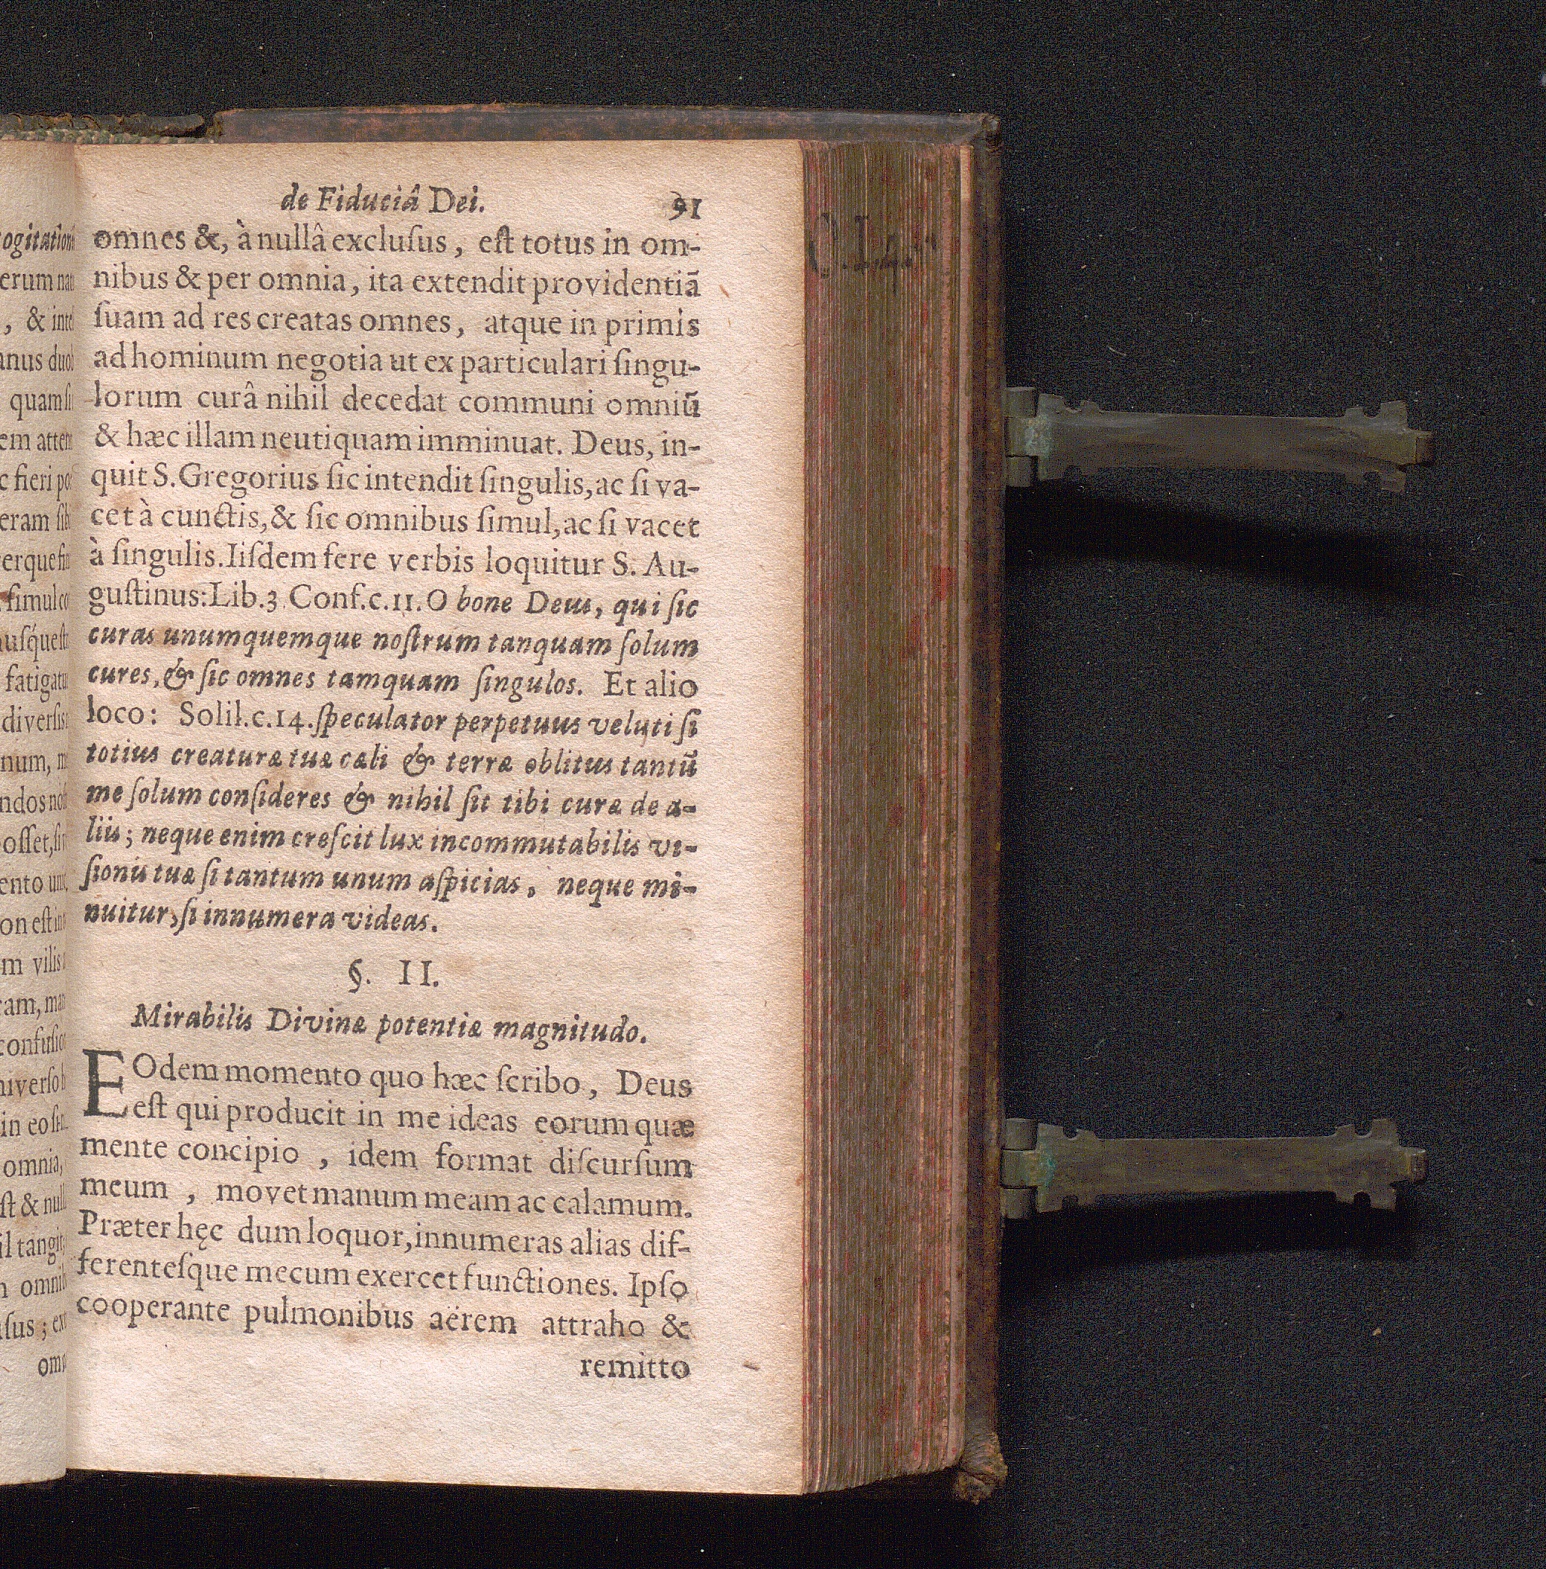 de Fiduciâ Dei. 91
omnes &, à nullâ exclusus, est totus in om-
nibus & per omnia, ita extendit providentiã
suam ad res creatas omnes, atque in primis
ad hominum negotia ut ex particulari singu-
lorum curâ nihil decedat communi omniũ
& hæc illam neutiquam imminuat. Deus, in-
quit S. Gregorius sic intendit singulis, ac si va-
cet à cunctis, & sic omnibus simul, ac si vacet
à singulis. Iisdem fere verbis loquitur S. Au-
gustinus: Lib. 3. Conf. c. 11. O bone Deus, qui sic
curas unumquemque nostrum tanquam solum
cures, & sic omnes tamquam singulos. Et alio
loco: Solil. c. 14. speculator perpetuus veluti si
totius creaturæ tuæ cæli & terræ oblitus tantũ
me solum consideres & nihil sit tibi curæ de a-
liis; neque enim crescit lux incommutabilis vi-
sionis tuæ si tantum unum aspicias, neque mi-
nuitur, si innumera videas.
§. II.
Mirabilis Divinæ potentiæ magnitudo.
EOdem momento quo hæc scribo, Deus
est qui producit in me ideas eorum quæ
mente concipio, idem format discursum
meum, movet manum meam ac calamum.
Præter hęc dum loquor, innumeras alias dif-
ferentesque mecum exercet functiones. Ipso
cooperante pulmonibus aërem attraho &
remitto